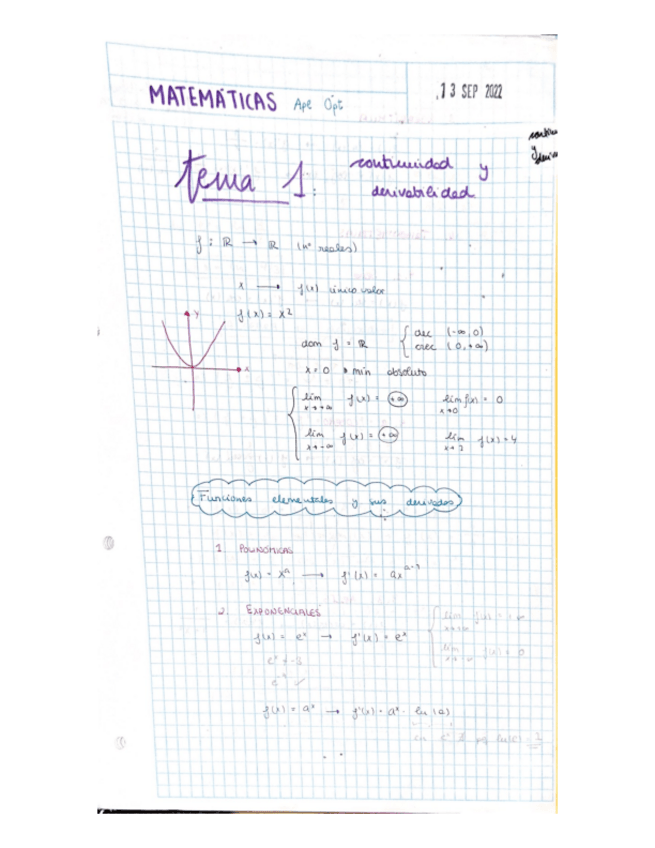 MATEMÁTICAS Ape Opt
13 SEP 2022
tema 1: continuidad y
derivabilidad
f: ℝ → ℝ (nº reales)
x → f(x) único valor
f(x) = x²
y
x
dom f = ℝ { dec (-∞, 0)
crec (0, +∞)
x = 0 → min absoluto
lim x→+∞ f(x) = +∞ lim x→0 f(x) = 0
lim x→-∞ f(x) = +∞ lim x→2 f(x) = 4
Funciones elementales y sus derivadas
1. POLINÓMICAS
f(x) = xᵃ → f'(x) = axᵃ⁻¹
2. EXPONENCIALES
f(x) = eˣ → f'(x) = eˣ
lim f(x) = +∞
lim x→-∞ f(x) = 0
f(x) = aˣ → f'(x) = aˣ · ln(a)